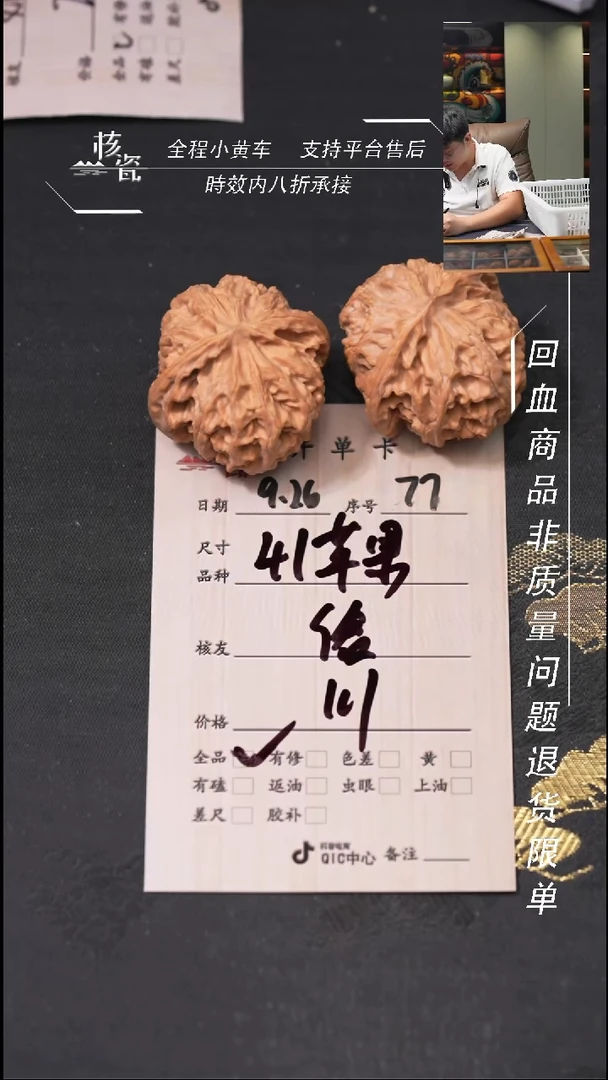 核瓷
全程小黄车 支持平台售后
時效内八折承接
回血商品非质量问题退货限单
开单卡
日期 9.26 序号 77
尺寸
品种 41苹果
核友
价格
全品 ✓ 有修 色差 黄
有磕 返油 虫眼 上油
差尺 胶补
抖音电商
QIC中心 备注